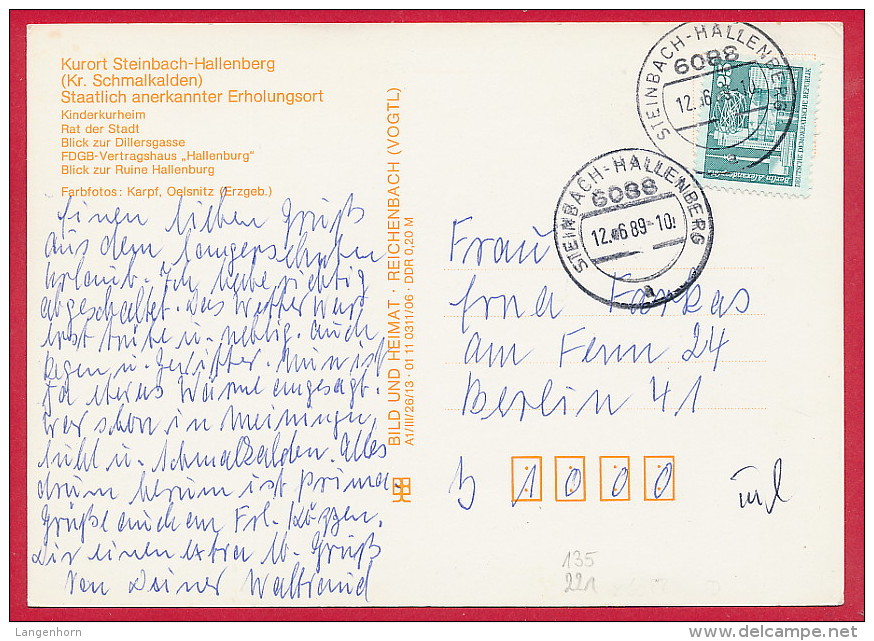 Kurort Steinbach-Hallenberg
(Kr. Schmalkalden)
Staatlich anerkannter Erholungsort
Kinderkurheim
Rat der Stadt
Blick zur Dillersgasse
FDGB-Vertragshaus „Hallenburg"
Blick zur Ruine Hallenburg
Farbfotos: Karpf, Oelsnitz (Erzgeb.)
Einen lieben Gruß
aus dem langersehnten
Urlaub. Ich habe richtig
abgeschaltet. Das Wetter war
erst trübe u. neblig. auch
Regen u. Gewitter. Nun ist
ja etwas Wärme angesagt.
War schon in Meiningen,
Suhl u. Schmalkalden. Alles
drum herum ist prima.
Grüße auch an Frl.
Dir einen extra lb. Gruß
von Deiner Waltraud
BILD UND HEIMAT · REICHENBACH (VOGTL)
A1/III/26/13 · 01 11 0311/06 · DDR 0,20 M
STEINBACH-HALLENBERG
6088
12.-6 -10
a
25
Berlin, Alexanderplatz
DEUTSCHE DEMOKRATISCHE REPUBLIK
STEINBACH-HALLENBERG
6088
12.-6 89-10
a
Frau
Erna Farkas
am Fenn 24
Berlin 41
1000
135
221
Langenhorn
delcampe.net